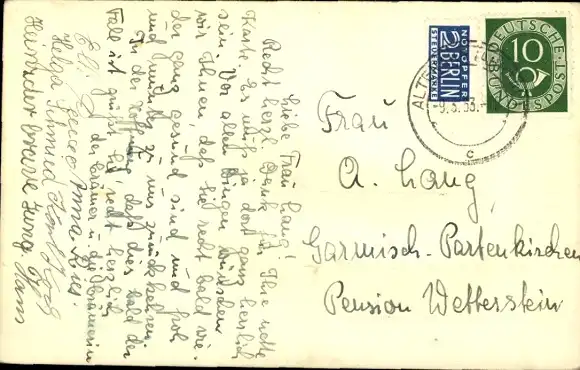 Liebe Frau Lang!
Recht herzl. Dank für Ihre nette
Karte. Es muß ja dort ganz herrlich
sein. Vor allen Dingen wünschen
wir Ihnen, daß Sie recht bald wie-
der ganz gesund sind und froh
und munter zu uns zurückkehren.
In der Hoffnung, daß dies bald der
Fall ist grüßt Sie recht herzlich
Anna Lies.
Helga Schmied
Heini der brave Jung. Hans
NOTOPFER
2 BERLIN
STEUERMARKE
DEUTSCHE
BUNDESPOST
10
ALT
-9.3.53.-
c
Frau
A. Lang,
Garmisch-Partenkirchen
Pension Wetterstein